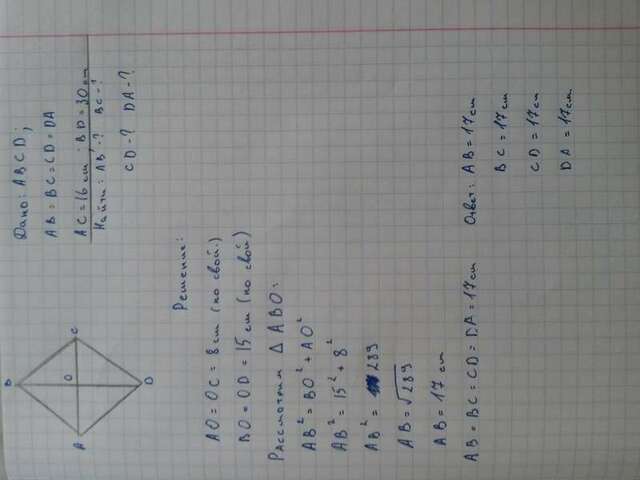 B
A O C
D
Дано: ABCD;
AB = BC = CD = DA
AC = 16 см; BD = 30 см
Найти: AB-? BC-?
CD-? DA-?
Решение:
AO = OC = 8 см (по свой.)
BO = OD = 15 см (по свой)
Рассмотрим △ABO:
AB² = BO² + AO²
AB² = 15² + 8²
AB² = 289
AB = √289
AB = 17 см
AB = BC = CD = DA = 17 см
Ответ: AB = 17 см
BC = 17 см
CD = 17 см
DA = 17 см.